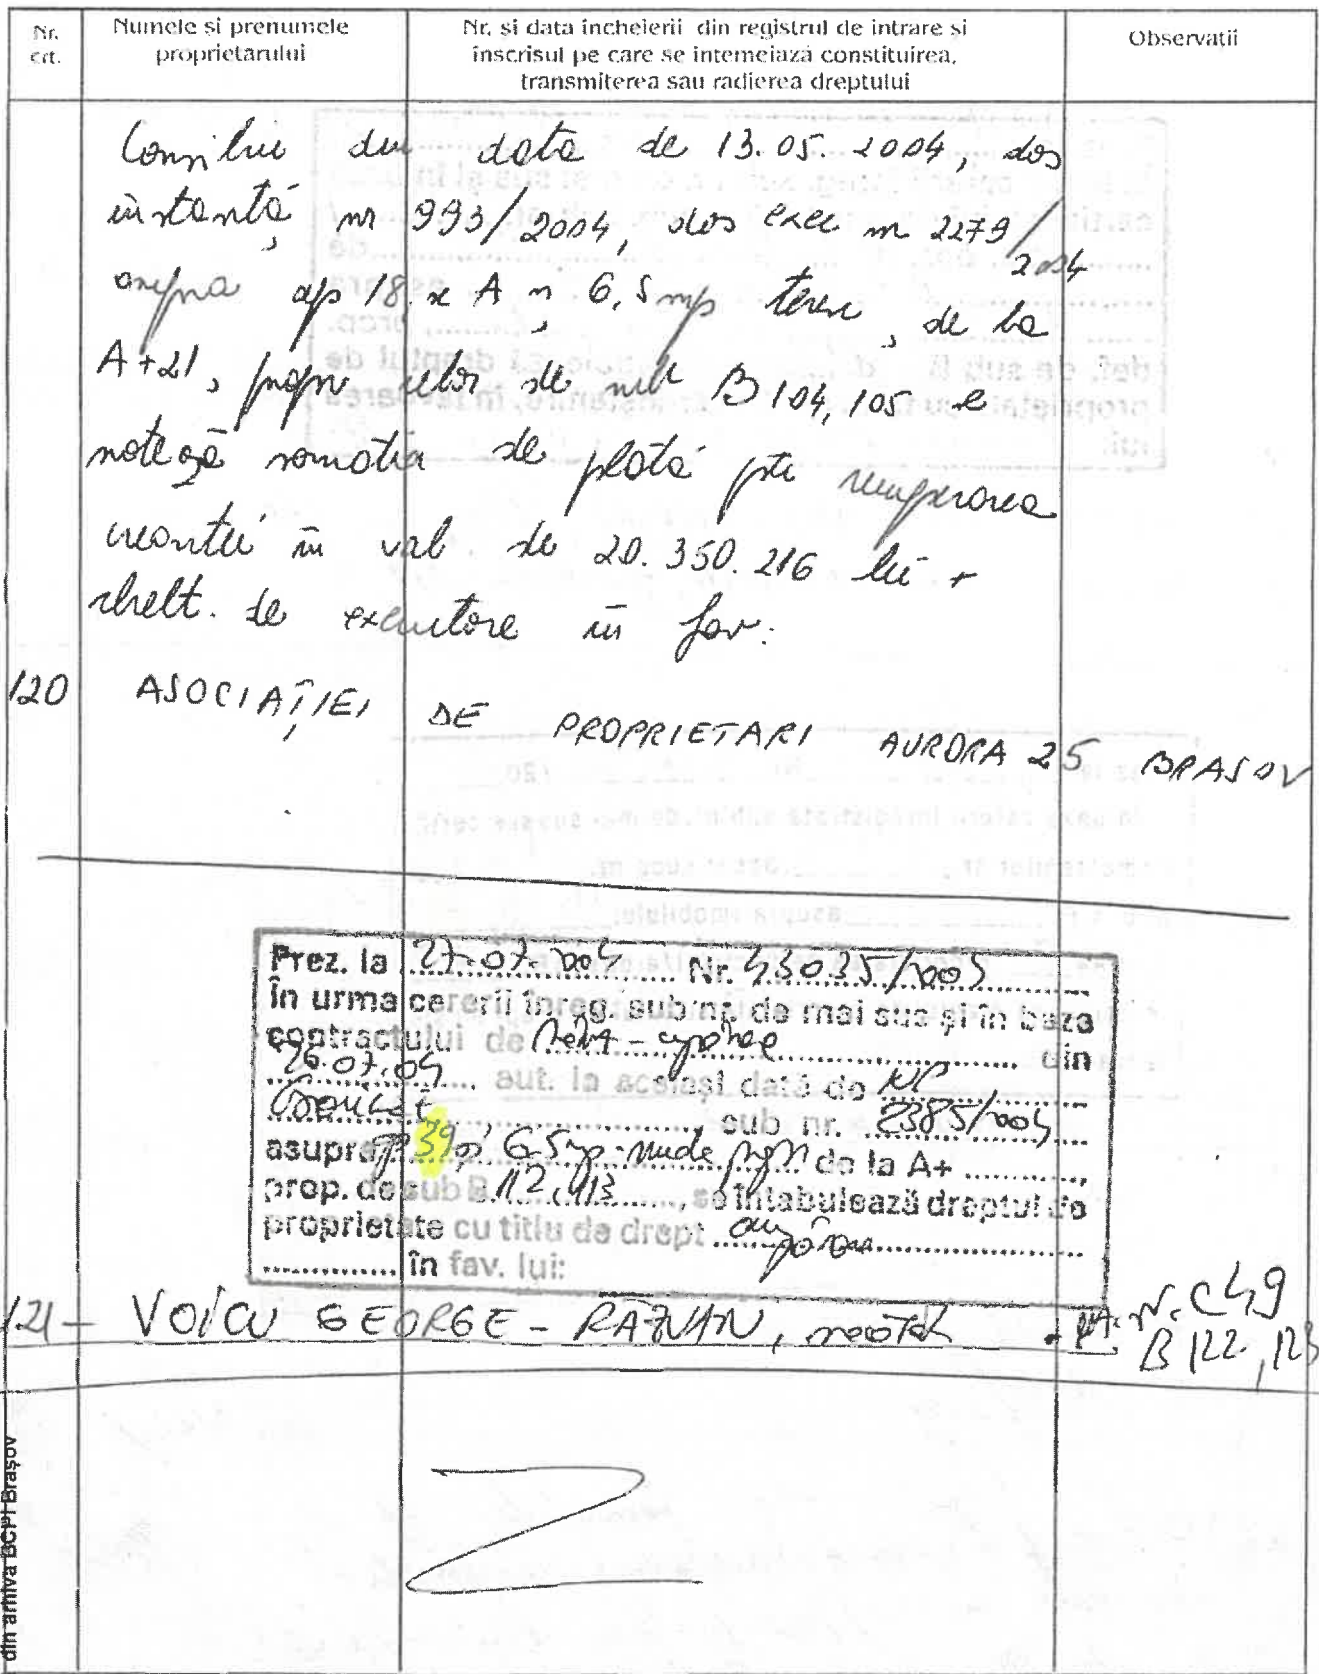 Nr. crt.
Numele si prenumele proprietarului
Nr. si data incheierii din registrul de intrare si
inscrisul pe care se intemeiază constituirea,
transmiterea sau radierea dreptului
Observatii
data de 13.05.2004, dos
instanță nr 993/2004, dos exec nr 2279/2004
asupra ap 18 A 6,5 mp teren, de la
A+21, propr celor de sub B 104, 105 se
notează somația de plată ptr recuperarea
creanței în val de 20.350.216 lei +
chelt. de executare în fav:
120 ASOCIAȚIEI DE PROPRIETARI AURORA 25 BRASOV
Prez. la 27.07.2004 Nr.
În urma cererii înreg. sub nr. de mai sus și în baza
contractului de din
26.07.04 aut. la aceiași dată de NP
sub nr. 2385/2004
asupra ap 39 și 6,5 mp de la A+
prop. de sub B 112, 113, se întabulează dreptul de
proprietate cu titlu de drept cumpărare
în fav. lui:
121 - VOICU GEORGE - RĂZVAN, necăsăt.
B 122, 123
din arhiva BCPI Brașov